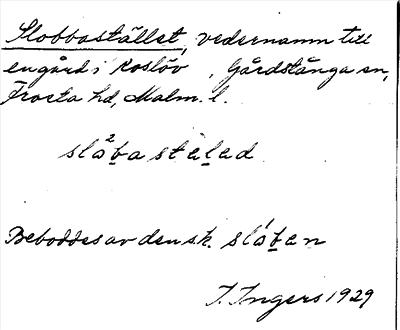 Slobbastället, vedernamn till
en gård i Roslöv , Gårdstånga sn,
Frosta hd, Malm. l.
slò²ba stäled
Beboddes av den s.k. slóben
I. Ingers 1929